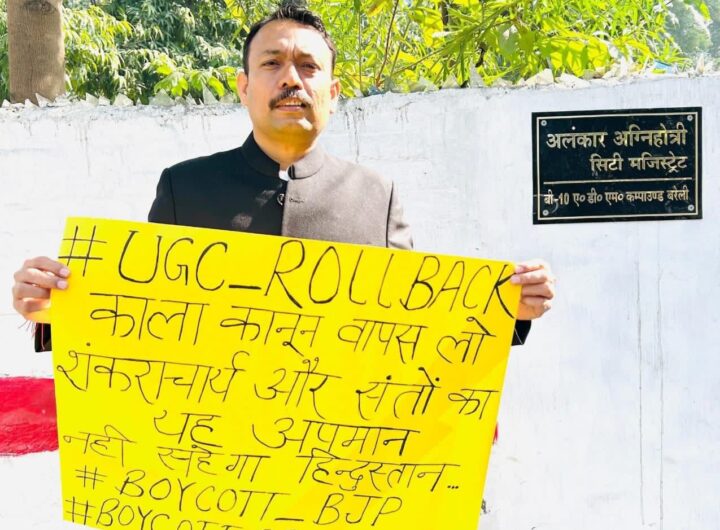 अलंकार अग्निहोत्री
सिटी मजिस्ट्रेट
बी-10 ए० डी० एम० कम्पाउण्ड बरेली
#UGC_ROLLBACK
काला कानून वापस लो
शंकराचार्य और संतों का
यह अपमान
नही सहेगा हिन्दुस्तान...
# BOYCOTT_BJP
#BOYCOTT